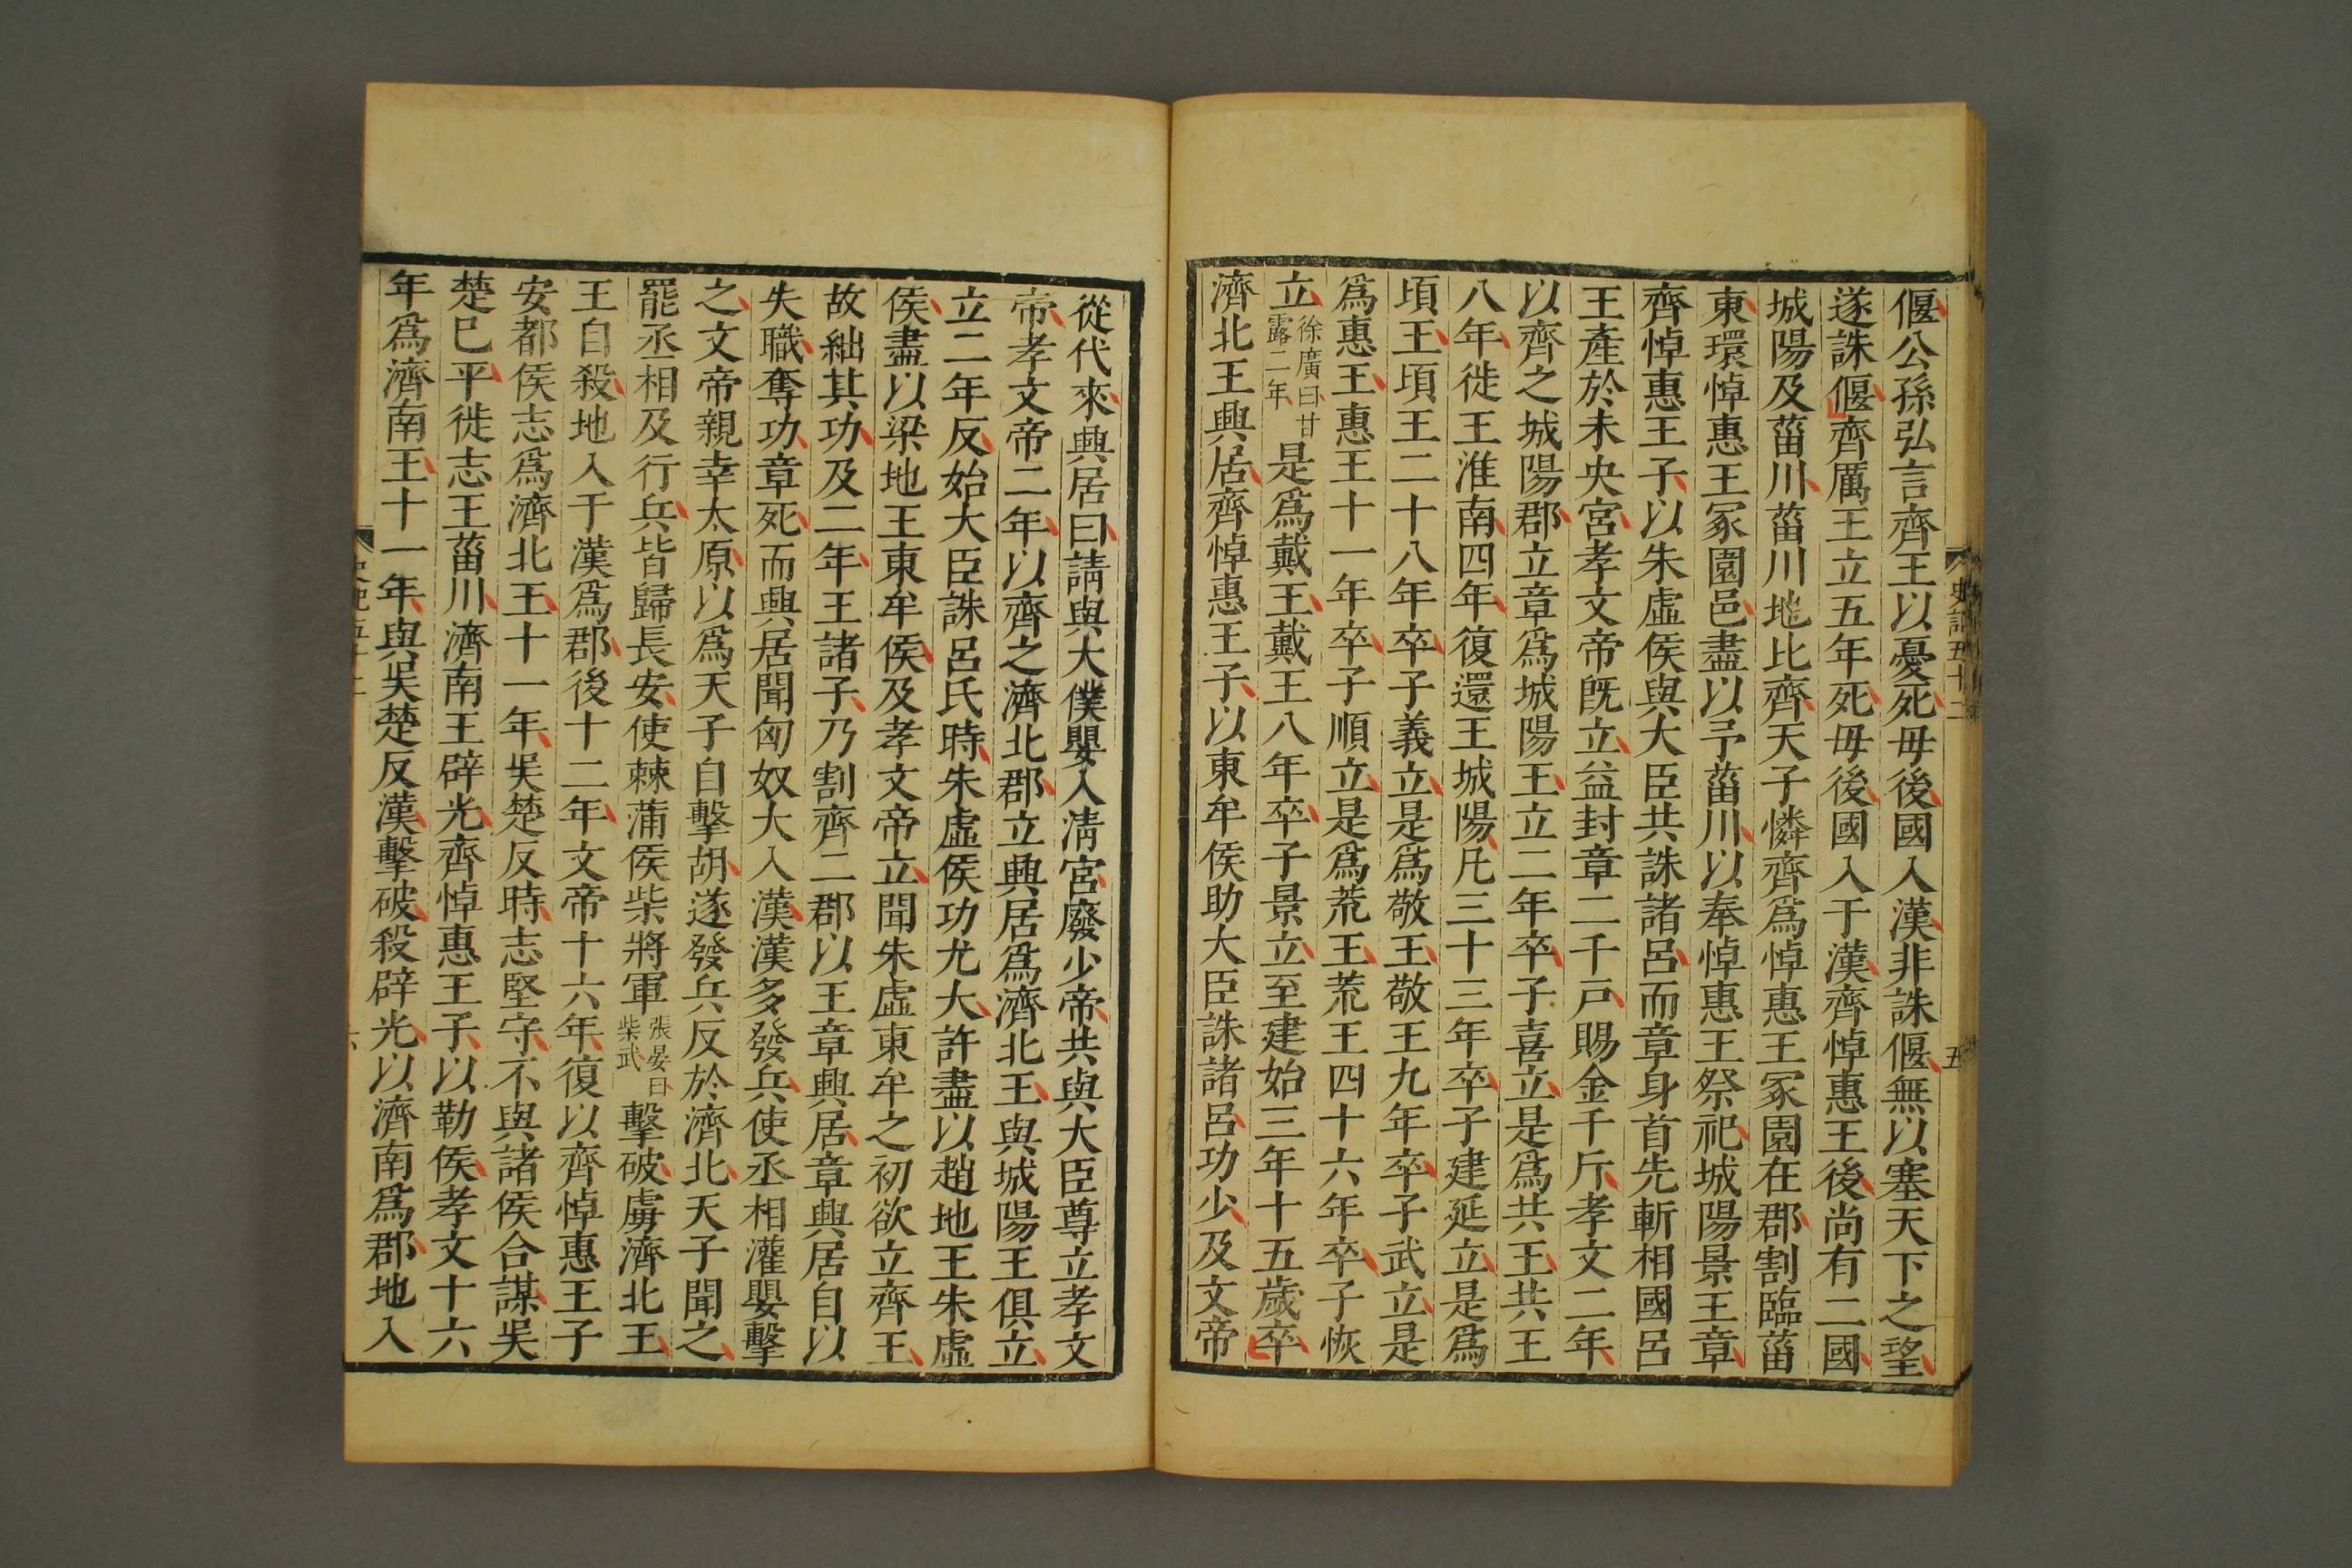 偃公孫弘言齊王以憂死毋後國入漢非誅偃無以塞天下之望
遂誅偃齊厲王立五年死毋後國入于漢齊悼惠王後尚有二國
城陽及菑川菑川地比齊天子憐齊爲悼惠王冢園在郡割臨菑
東環悼惠王冢園邑盡以予菑川以奉悼惠王祭祀城陽景王章
齊悼惠王子以朱虛侯與大臣共誅諸呂而章身首先斬相國呂
王產於未央宮孝文帝既立益封章二千戶賜金千斤孝文二年
以齊之城陽郡立章爲城陽王立二年卒子喜立是爲共王共王
八年徙王淮南四年復還王城陽凡三十三年卒子建延立是爲
頃王頃王二十八年卒子義立是爲敬王敬王九年卒子武立是
爲惠王惠王十一年卒子順立是爲荒王荒王四十六年卒子恢
立徐廣曰甘露二年是爲戴王戴王八年卒子景立至建始三年十五歲卒
濟北王興居齊悼惠王子以東牟侯助大臣誅諸呂功少及文帝
史記五十二
五
從代來興居曰請與大僕嬰入清宮廢少帝共與大臣尊立孝文
帝孝文帝二年以齊之濟北郡立興居爲濟北王與城陽王俱立
立二年反始大臣誅呂氏時朱虛侯功尤大許盡以趙地王朱虛
侯盡以梁地王東牟侯及孝文帝立聞朱虛東牟之初欲立齊王
故絀其功及二年王諸子乃割齊二郡以王章興居章興居自以
失職奪功章死而興居聞匈奴大入漢漢多發兵使丞相灌嬰擊
之文帝親幸太原以爲天子自擊胡遂發兵反於濟北天子聞之
罷丞相及行兵皆歸長安使棘蒲侯柴將軍張晏曰柴武擊破虜濟北王
王自殺地入于漢爲郡後十二年文帝十六年復以齊悼惠王子
安都侯志爲濟北王十一年吳楚反時志堅守不與諸侯合謀吳
楚已平徙志王菑川濟南王辟光齊悼惠王子以勒侯孝文十六
年爲濟南王十一年與吳楚反漢擊破殺辟光以濟南爲郡地入
史記五十二
六